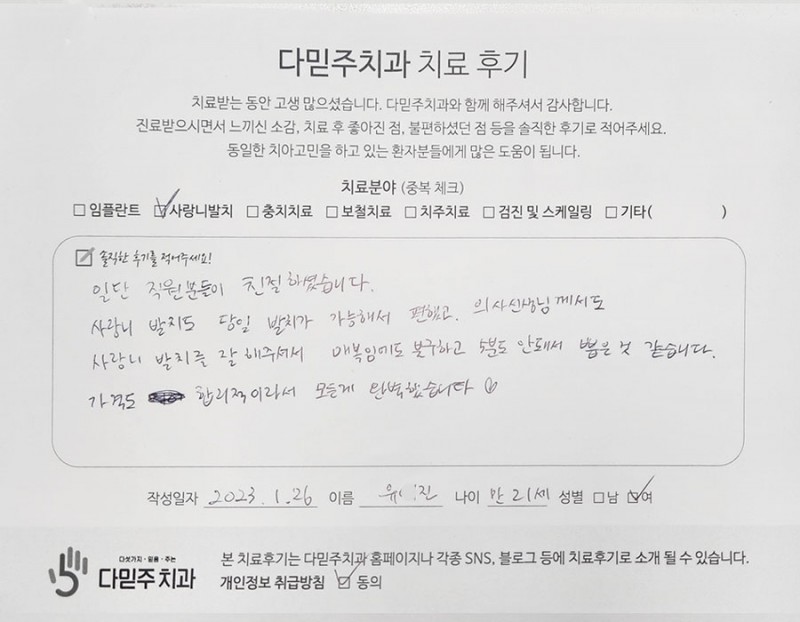 다믿주치과 치료 후기
치료받는 동안 고생 많으셨습니다. 다믿주치과와 함께 해주셔서 감사합니다.
진료받으시면서 느끼신 소감, 치료 후 좋아진 점, 불편하셨던 점 등을 솔직한 후기로 적어주세요.
동일한 치아고민을 하고 있는 환자분들에게 많은 도움이 됩니다.
치료분야 (중복 체크)
□ 임플란트 ☑ 사랑니발치 □ 충치치료 □ 보철치료 □ 치주치료 □ 검진 및 스케일링 □ 기타( )
솔직한 후기를 적어주세요!
일단 직원분들이 친절하셨습니다.
사랑니 발치도 당일 발치가 가능해서 편했고, 의사선생님께서도
사랑니 발치를 잘 해주셔서 매복임에도 불구하고 5분도 안돼서 뽑은 것 같습니다.
가격도 합리적이라서 모든게 완벽했습니다
작성일자 2023.1.26 이름 유 진 나이 만 21세 성별 □남 ☑여
다섯가지·믿음·주는
다믿주치과
본 치료후기는 다믿주치과 홈페이지나 각종 SNS, 블로그 등에 치료후기로 소개 될 수 있습니다.
개인정보 취급방침 ☑ 동의